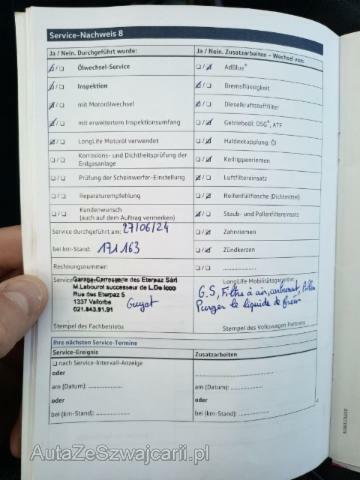 Service-Nachweis 8
Ja / Nein. Durchgeführt wurde:
Ja / Nein. Zusatzarbeiten – Wechsel von:
Ölwechsel-Service
AdBlue®
Inspektion
Bremsflüssigkeit
mit Motorölwechsel
Dieselkraftstofffilter
mit erweitertem Inspektionsumfang
Getriebeöl: DSG®, ATF
LongLife Motoröl verwendet
Haldexkupplung: Öl
Korrosions- und Dichtheitsprüfung der
Erdgasanlage
Keilrippenriemen
Prüfung der Scheinwerfer-Einstellung
Luftfilter
Reparaturempfehlung
Reifenfüllflasche (Dichtmittel)
Kundenwunsch
(auch auf dem Auftrag vermerken)
Staub- und Pollenfiltereinsatz
Service durchgeführt am: 27/06/24
Zahnriemen
bei km-Stand: 171163
Zündkerzen
Rechnungsnummer:
LongLife Mobilitätsgarantie
Garage-Carrosserie des Eterpaz Sàrl
M.Labouroi successeur de L.De Icco
Rue des Eterpaz 5
1337 Vallorbe
021.843.91.91
Guyat
G.S, Filtre à air, carburant, Pollen
Purger le liquide de frein
Stempel des Fachbetriebs
Stempel des Volkswagen Partners
Ihre nächsten Service-Termine
Service-Ereignis
Zusatzarbeiten
nach Service-Intervall-Anzeige
oder
am (Datum):
am (Datum):
oder
oder
bei (km-Stand):
bei (km-Stand):
AutaZeSzwajcarii.pl